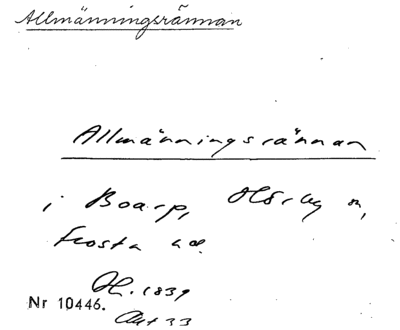 Allmänningsrännan
Allmänningsrännan
i Boarp, Hörby sn,
Frosta hd.
H. 1839
Nr 10446.
Akt 33